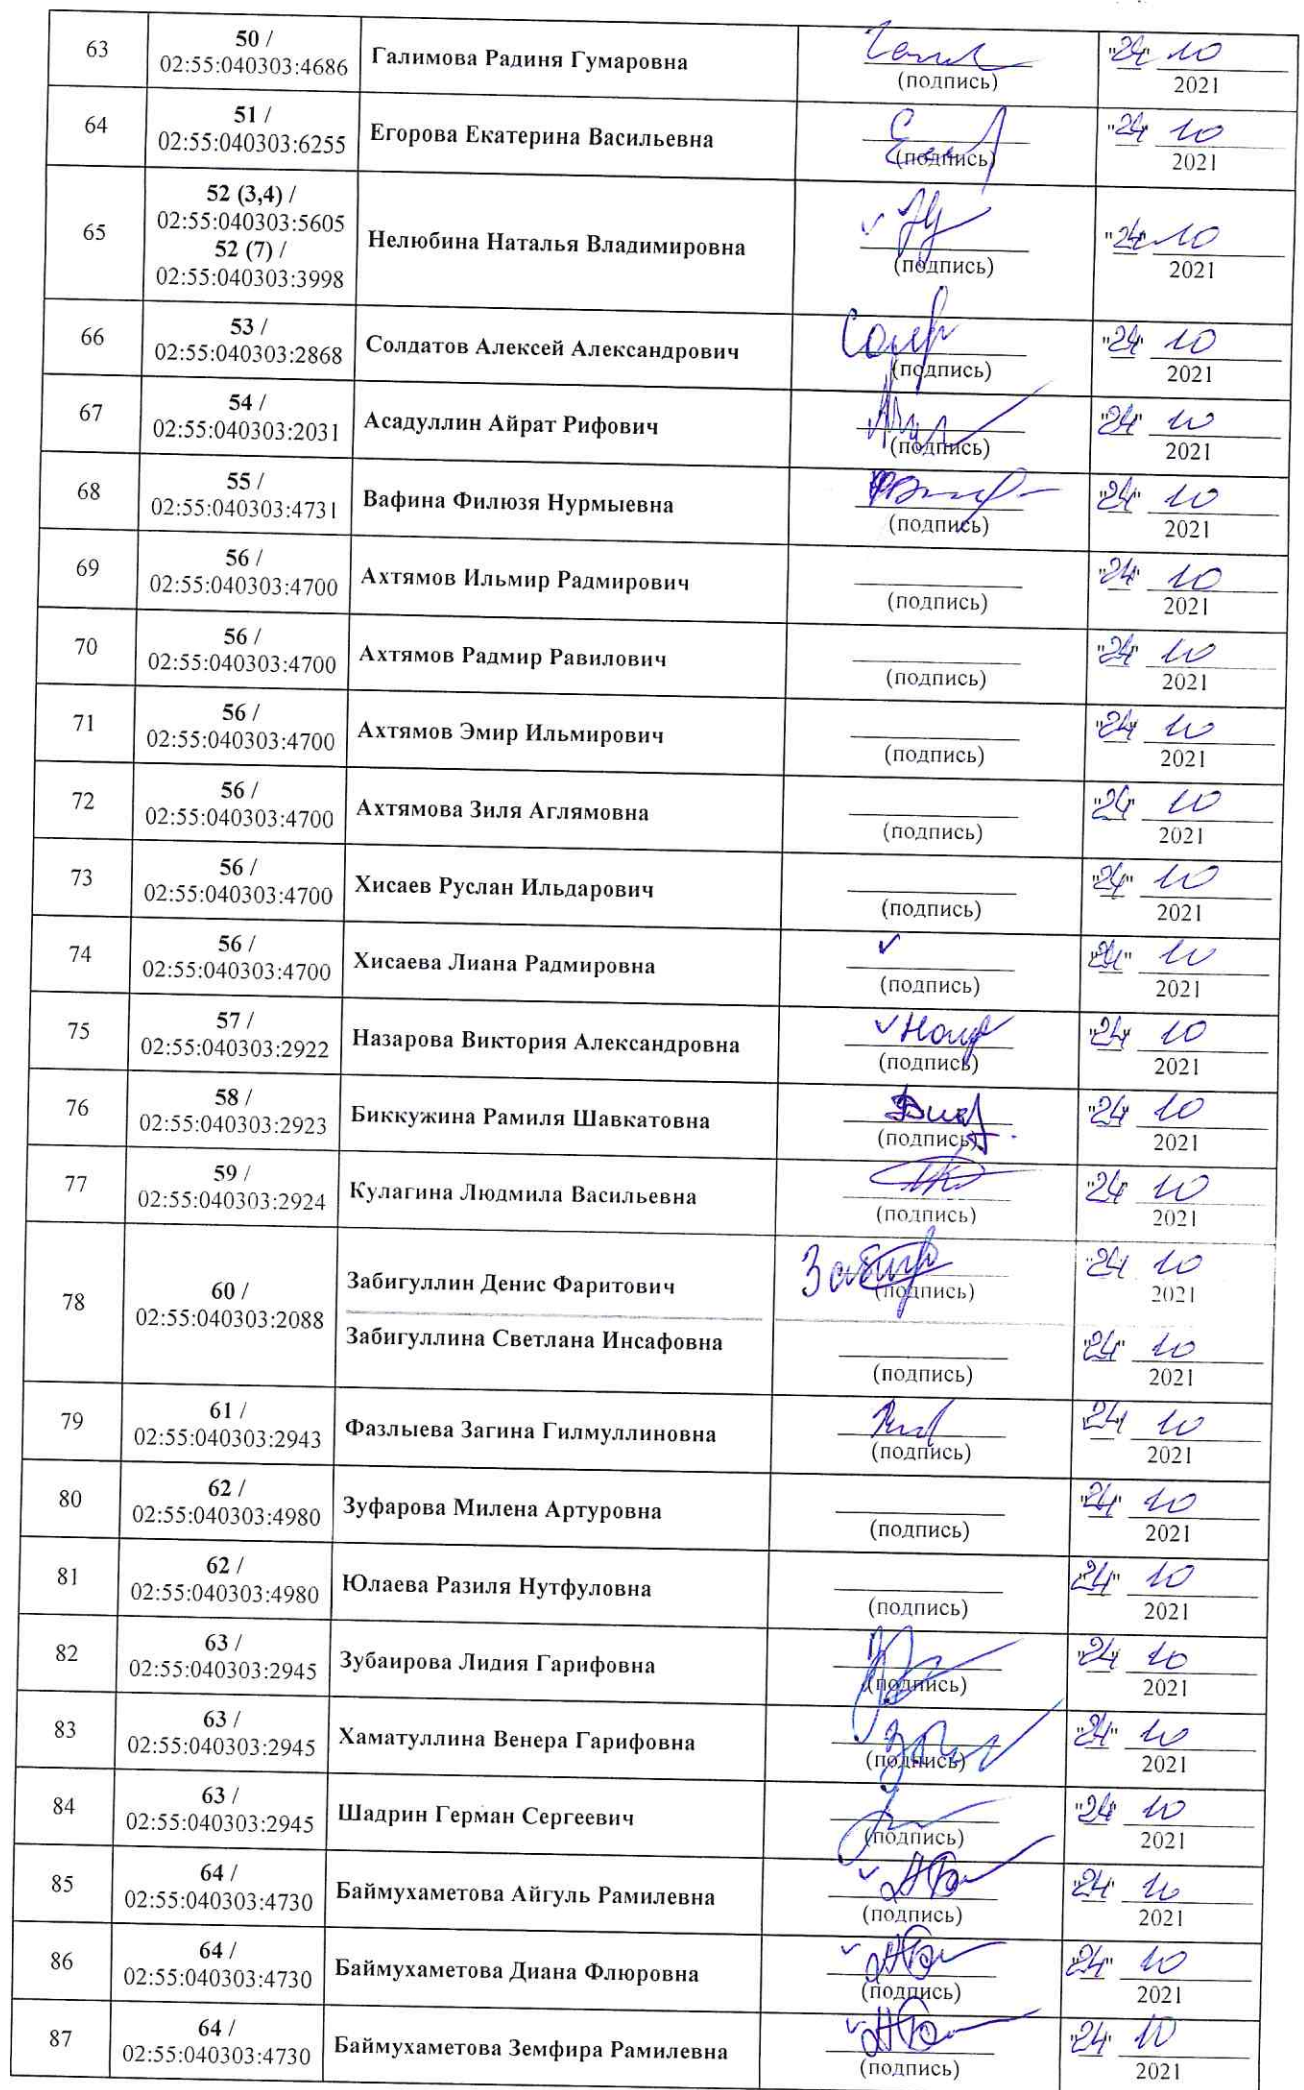 63
50 /
02:55:040303:4686
Галимова Радиня Гумаровна
(подпись)
"24" 10
2021
64
51 /
02:55:040303:6255
Егорова Екатерина Васильевна
(подпись)
"24" 10
2021
65
52 (3,4) /
02:55:040303:5605
52 (7) /
02:55:040303:3998
Нелюбина Наталья Владимировна
(подпись)
"24" 10
2021
66
53 /
02:55:040303:2868
Солдатов Алексей Александрович
(подпись)
"24" 10
2021
67
54 /
02:55:040303:2031
Асадуллин Айрат Рифович
(подпись)
"24" 10
2021
68
55 /
02:55:040303:4731
Вафина Филюзя Нурмыевна
(подпись)
"24" 10
2021
69
56 /
02:55:040303:4700
Ахтямов Ильмир Радмирович
(подпись)
"24" 10
2021
70
56 /
02:55:040303:4700
Ахтямов Радмир Равилович
(подпись)
"24" 10
2021
71
56 /
02:55:040303:4700
Ахтямов Эмир Ильмирович
(подпись)
"24" 10
2021
72
56 /
02:55:040303:4700
Ахтямова Зиля Аглямовна
(подпись)
"24" 10
2021
73
56 /
02:55:040303:4700
Хисаев Руслан Ильдарович
(подпись)
"24" 10
2021
74
56 /
02:55:040303:4700
Хисаева Лиана Радмировна
(подпись)
"24" 10
2021
75
57 /
02:55:040303:2922
Назарова Виктория Александровна
(подпись)
"24" 10
2021
76
58 /
02:55:040303:2923
Биккужина Рамиля Шавкатовна
(подпись)
"24" 10
2021
77
59 /
02:55:040303:2924
Кулагина Людмила Васильевна
(подпись)
"24" 10
2021
78
60 /
02:55:040303:2088
Забигуллин Денис Фаритович
(подпись)
"24" 10
2021
Забигуллина Светлана Инсафовна
(подпись)
"24" 10
2021
79
61 /
02:55:040303:2943
Фазлыева Загина Гилмуллиновна
(подпись)
"24" 10
2021
80
62 /
02:55:040303:4980
Зуфарова Милена Артуровна
(подпись)
"24" 10
2021
81
62 /
02:55:040303:4980
Юлаева Разиля Нутфуловна
(подпись)
"24" 10
2021
82
63 /
02:55:040303:2945
Зубаирова Лидия Гарифовна
(подпись)
"24" 10
2021
83
63 /
02:55:040303:2945
Хаматуллина Венера Гарифовна
(подпись)
"24" 10
2021
84
63 /
02:55:040303:2945
Шадрин Герман Сергеевич
(подпись)
"24" 10
2021
85
64 /
02:55:040303:4730
Баймухаметова Айгуль Рамилевна
(подпись)
"24" 10
2021
86
64 /
02:55:040303:4730
Баймухаметова Диана Флюровна
(подпись)
"24" 10
2021
87
64 /
02:55:040303:4730
Баймухаметова Земфира Рамилевна
(подпись)
"24" 10
2021